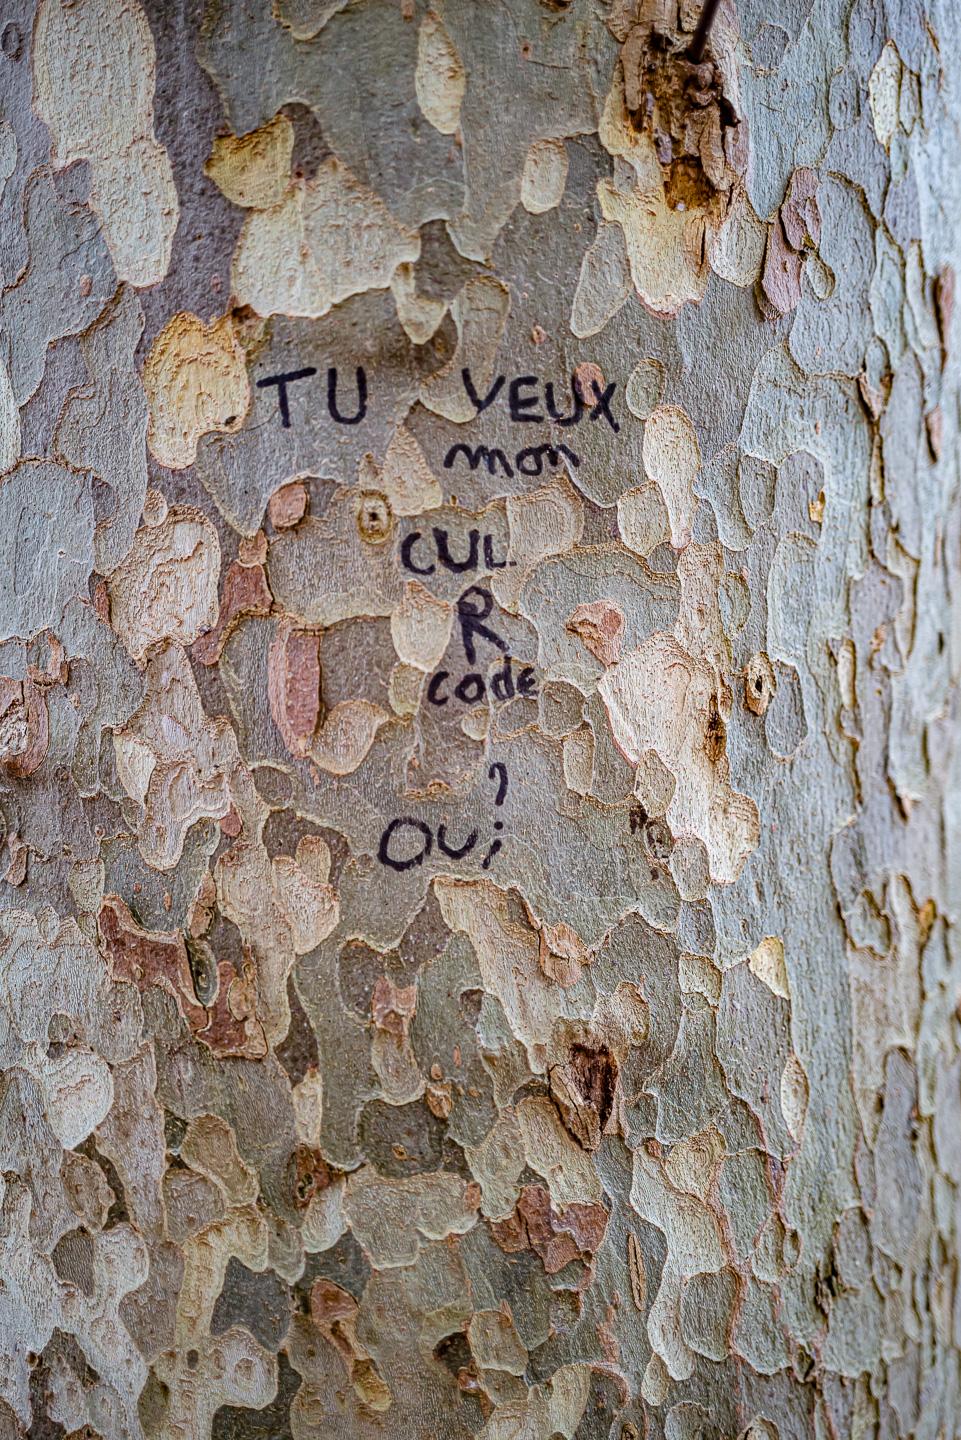 TU VEUX
mon
CUL
R
code
?
OUi